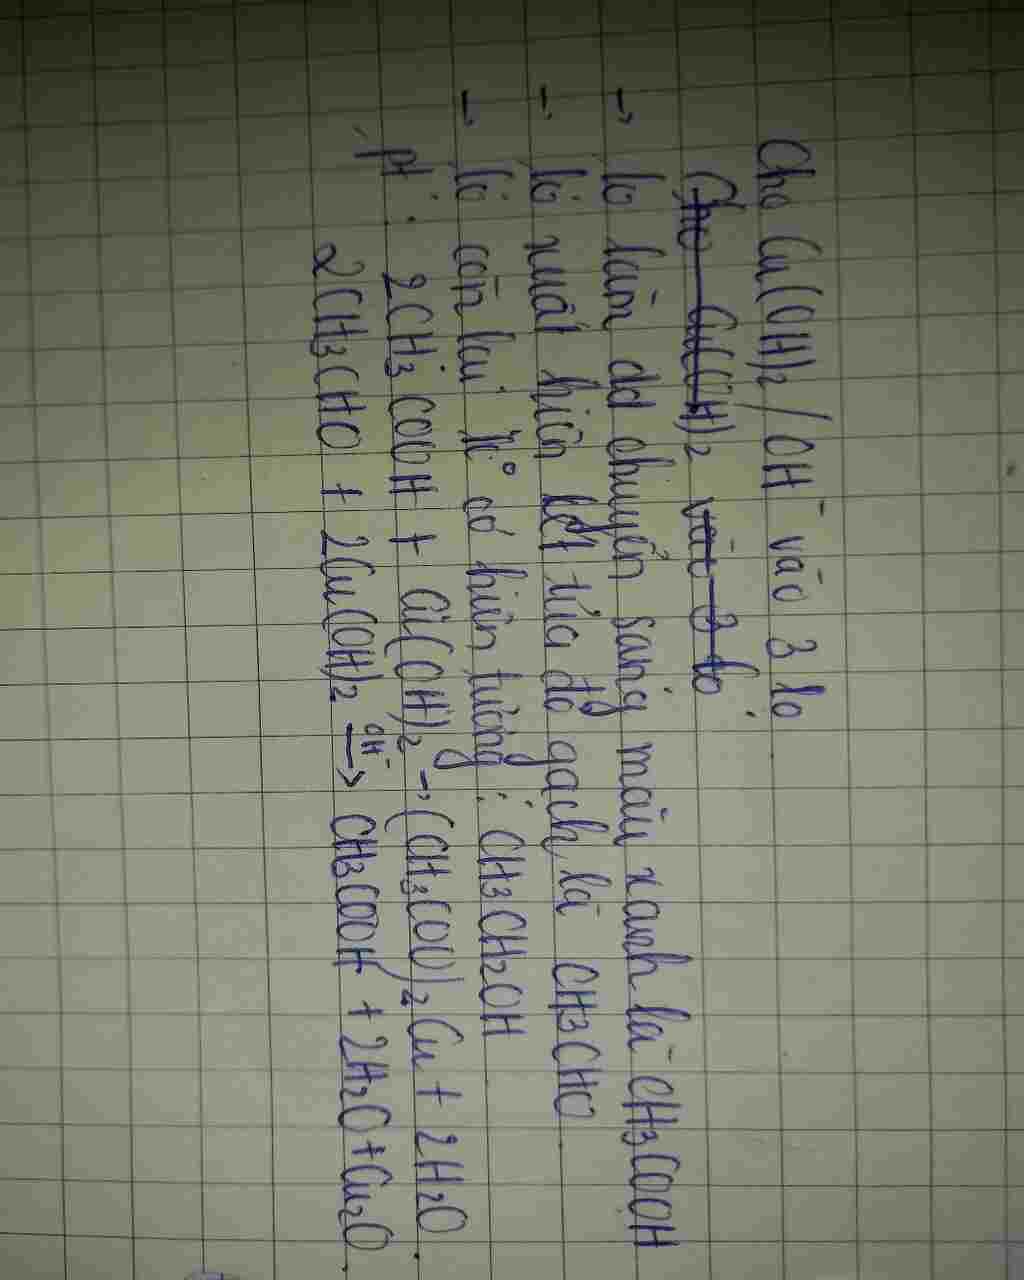 Cho Cu(OH)₂/OH⁻ vào 3 lọ
Cho Cu(OH)₂ vào 3 lọ
→ lọ làm dd chuyển sang màu xanh là CH3COOH
→ lọ xuất hiện kết tủa đỏ gạch là CH3CHO
→ lọ còn lại k° có hiện tượng : CH3CH2OH
pt : 2CH3COOH + Cu(OH)₂ → (CH3COO)₂Cu + 2H₂O.
2CH3CHO + 2Cu(OH)₂ OH⁻→ CH3COOH + 2H₂O + Cu₂O.